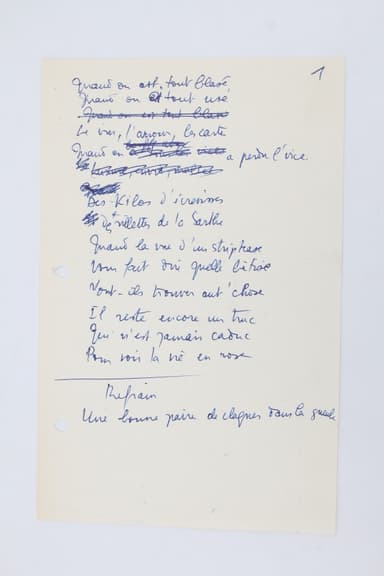 1
Quand on est tout blasé
Quand on est tout usé
Quand on est tout blasé
Le vin, l'amour, les carte
Quand on a perdu l'vice
Des Kilos d'écrevisses
Des rillettes de la Sarthe
Quand la vue d'un striptease
Vous fait dire quelle bêtise
Vont-ils trouver aut'chose
Il reste encore un truc
Qui n'est jamais caduc
Pour voir la vie en rose
Refrain
Une bonne paire de claques dans la gueule